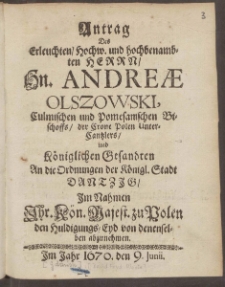 3
Antrag
Des
Erleuchten/ Hochw. und hochbenamb-
ten HERRN/
Hn. ANDREÆ
OLSZOWSKI,
Culmischen und Pomesanischen Bi-
schoffs/ der Crone Polen Unter-
Cantzlers/
und
Königlichen Gesandten
An die Ordnungen der Königl. Stadt
DANTZIG/
Im Nahmen
Ihr. Kön. Majest. zu Polen
den Huldigungs-Eyd von denensel-
ben abzunehmen.
Im Jahr 1670. den 9. Junii.